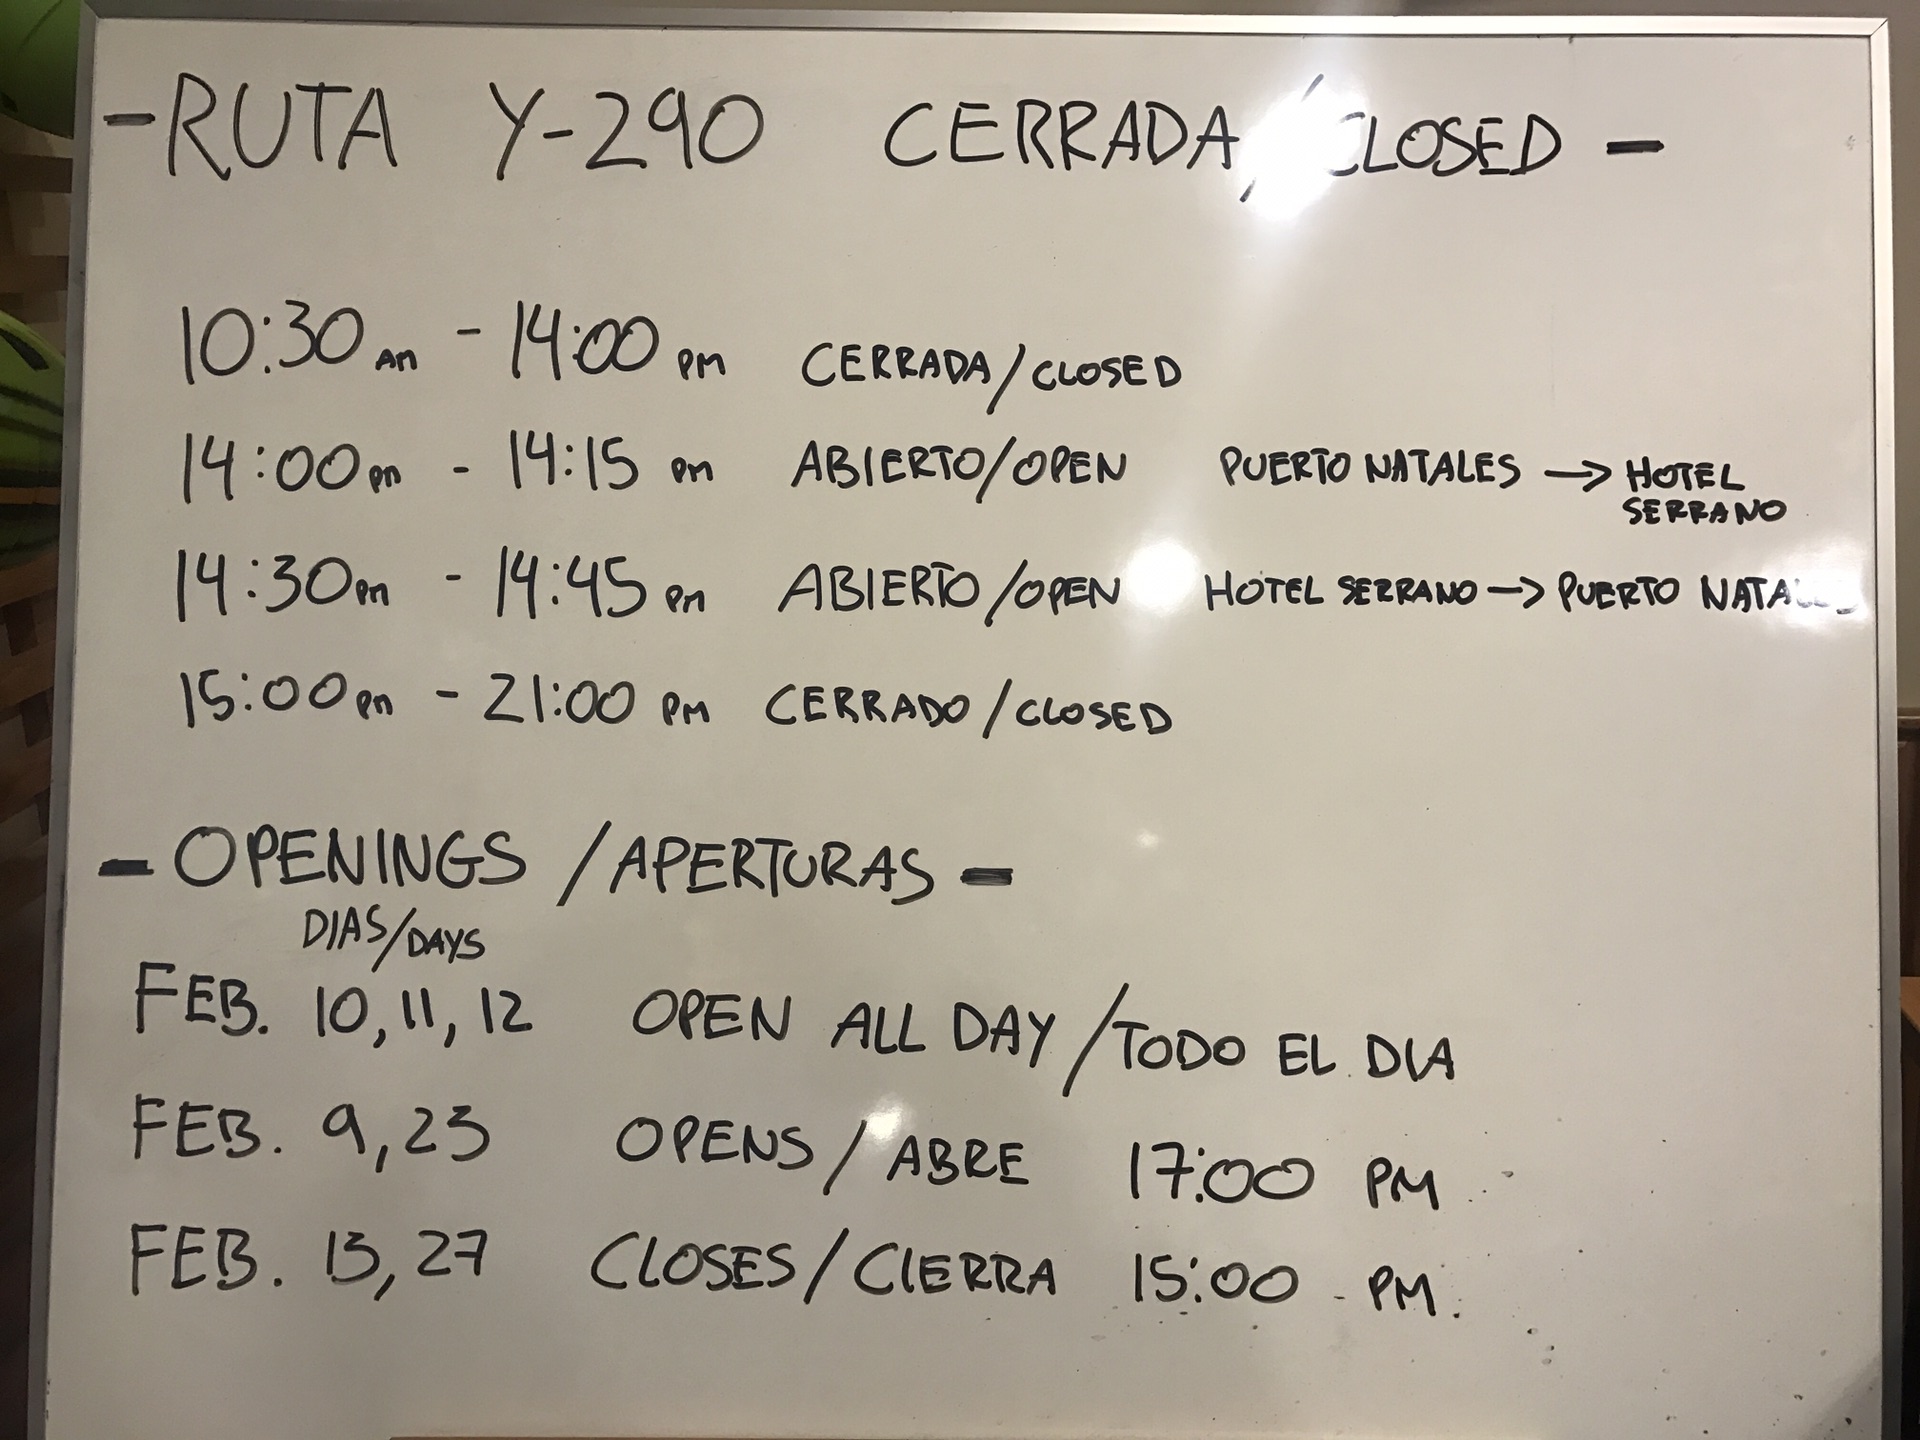 - RUTA Y-290 CERRADA/CLOSED -
10:30 AM - 14:00 PM CERRADA/CLOSED
14:00 PM - 14:15 PM ABIERTO/OPEN PUERTO NATALES → HOTEL
SERRANO
14:30 PM - 14:45 PM ABIERTO/OPEN HOTEL SERRANO → PUERTO NATALES
15:00 PM - 21:00 PM CERRADO/CLOSED
- OPENINGS / APERTURAS -
DIAS/DAYS
FEB. 10, 11, 12 OPEN ALL DAY / TODO EL DIA
FEB. 9, 23 OPENS / ABRE 17:00 PM
FEB. 13, 27 CLOSES / CIERRA 15:00 PM.